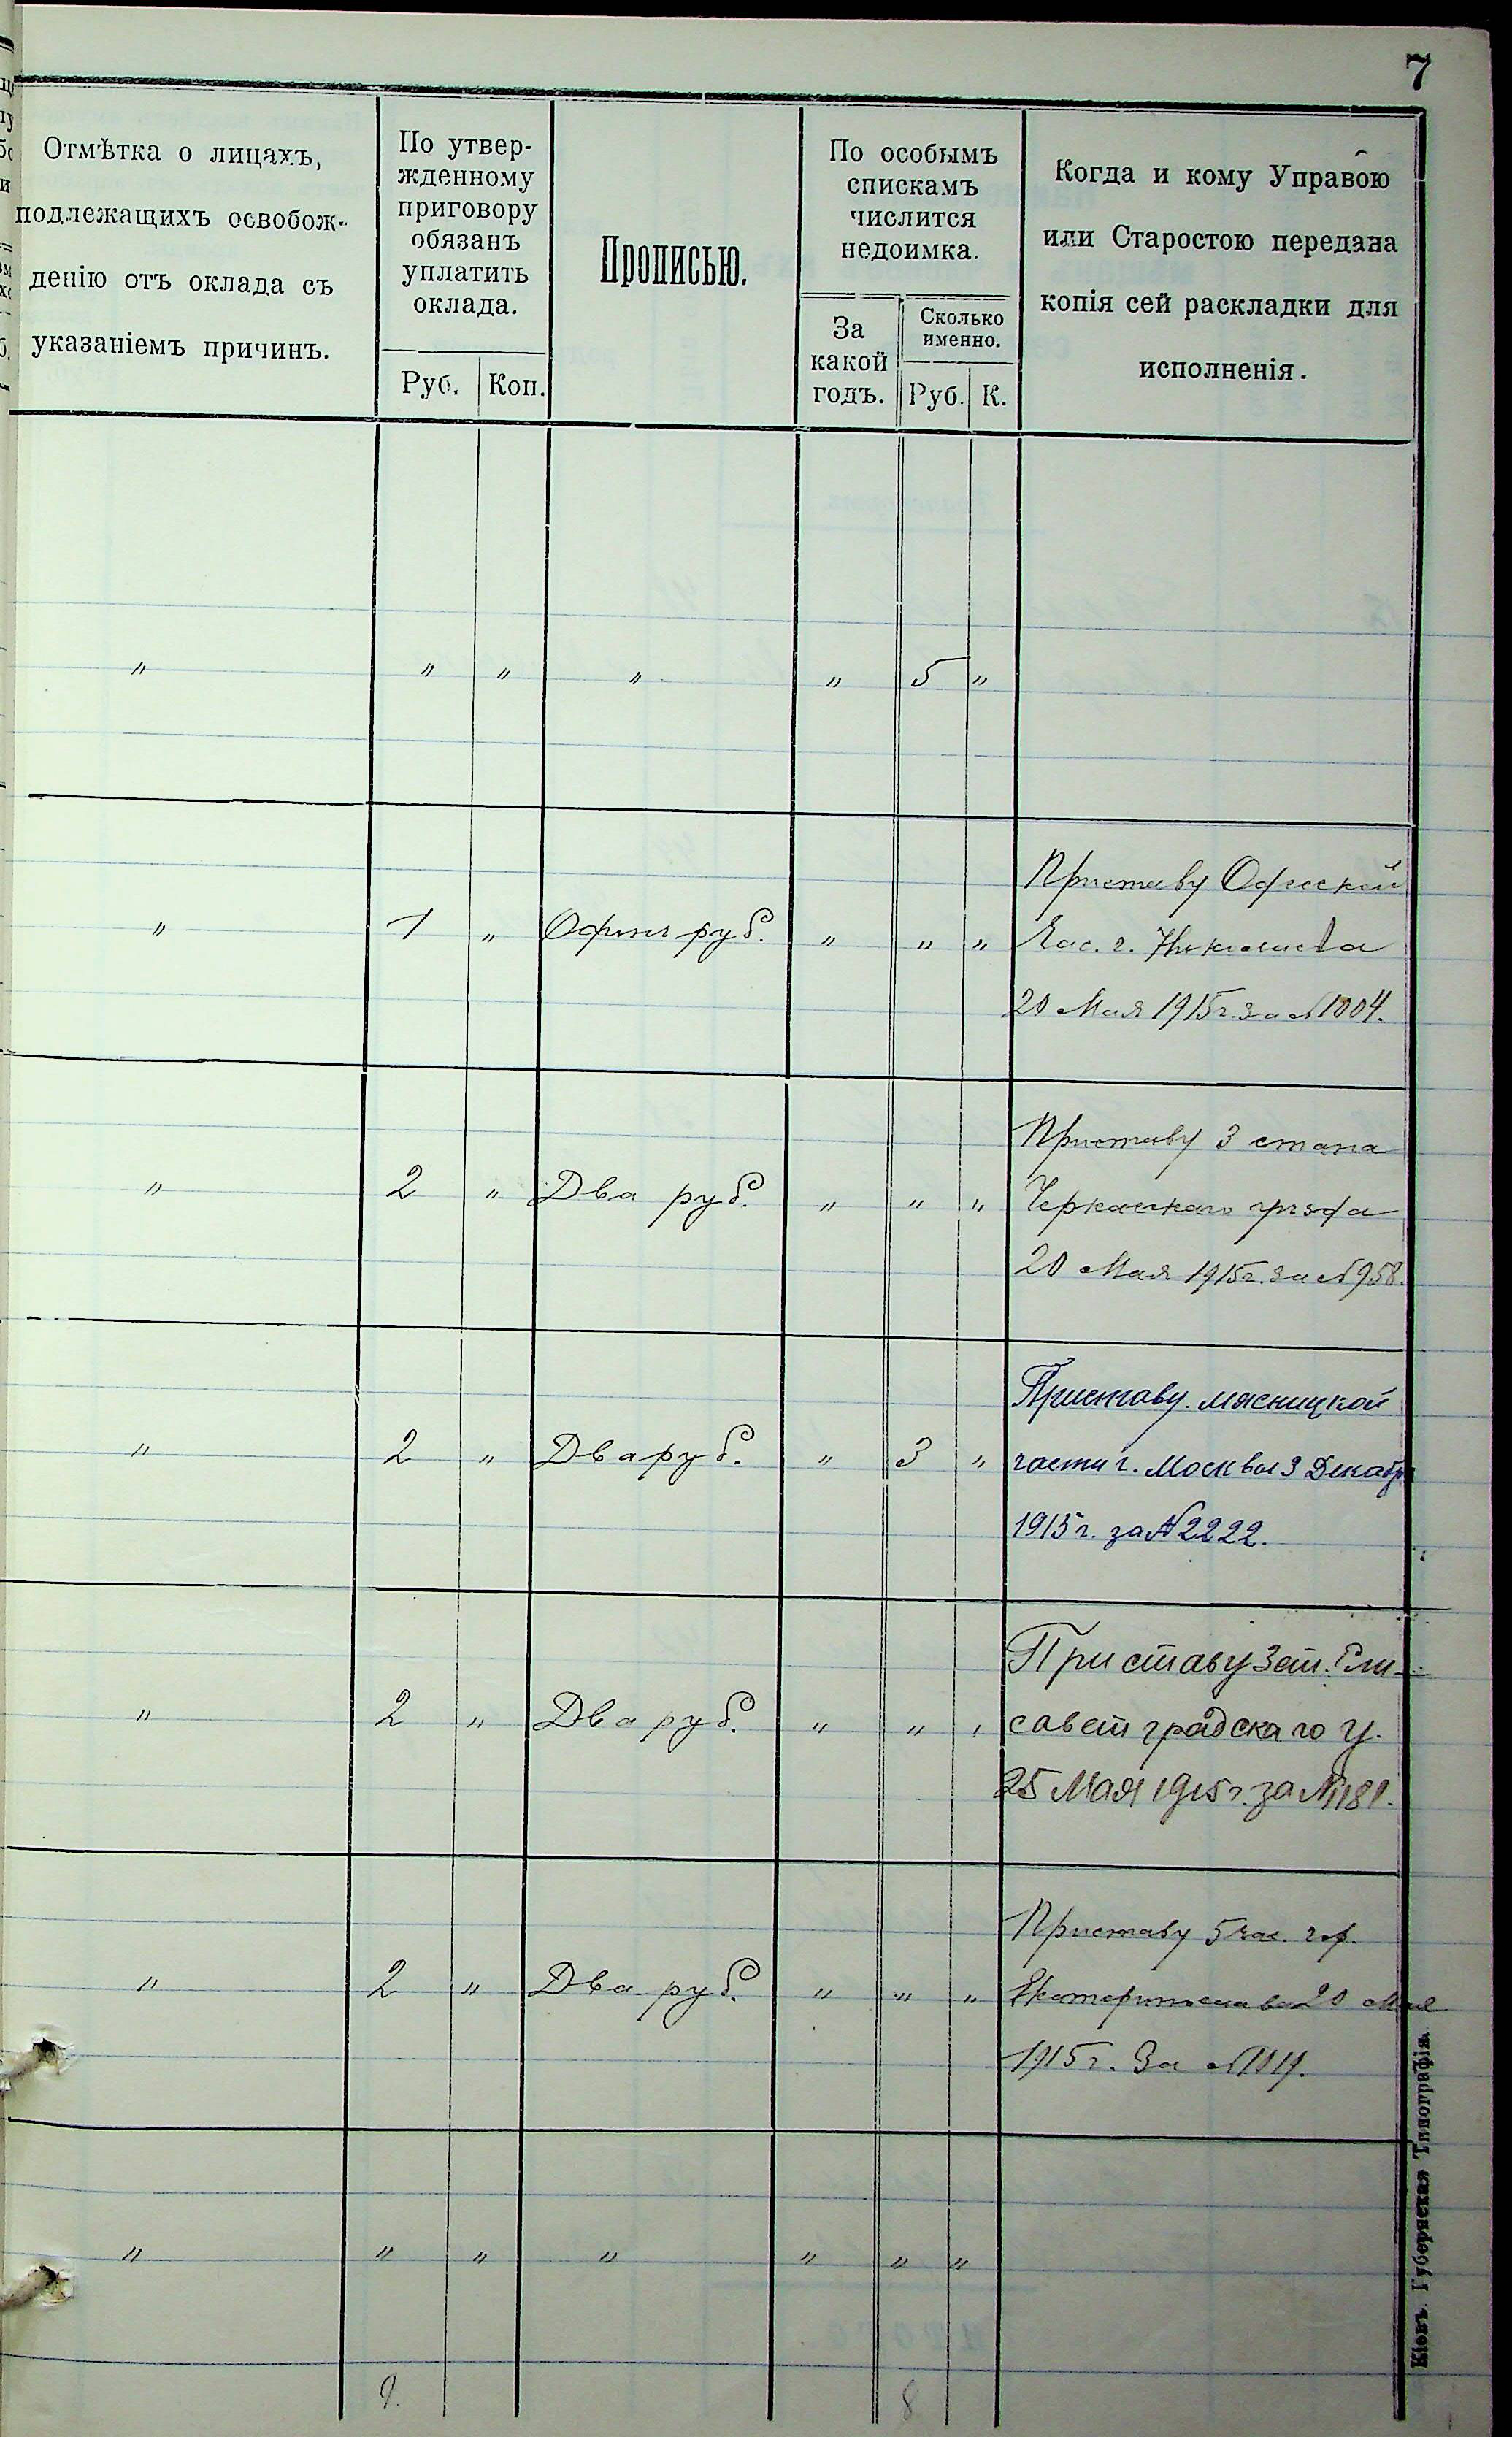 7
Отмѣтка о лицахъ,
подлежащихъ освобож-
денію отъ оклада съ
указаніемъ причинъ.
По утвер-
жденному
приговору
обязанъ
уплатить
оклада.
Руб. Коп.
Прописью.
По особымъ
спискамъ
числится
недоимка.
За
какой
годъ.
Сколько
именно.
Руб. К.
Когда и кому Управою
или Старостою передана
копія сей раскладки для
исполненія.
" " " " " 5 "
" 1 " Одинъ руб. " " "
Приставу Одесской
Час. г. Николаева
20 Мая 1915 г. за № 1004.
" 2 " Два руб. " " "
Приставу 3 стана
Черкасскаго уѣзда
20 Мая 1915 г. за № 958.
" 2 " Два руб. " 3 "
Приставу мясницкой
части г. Москвы 3 Декабр
1915 г. за № 2222.
" 2 " Два руб. " " "
Приставу 3 ст. Ели-
саветградскаго у.
25 Мая 1915 г. за № 1181.
" 2 " Два руб. " " "
Приставу 5 час. гор.
Екатеринослава 20 Мая
1915 г. За №
" " " " " " "
9. 8
Кіевъ. Губернская Типографія.